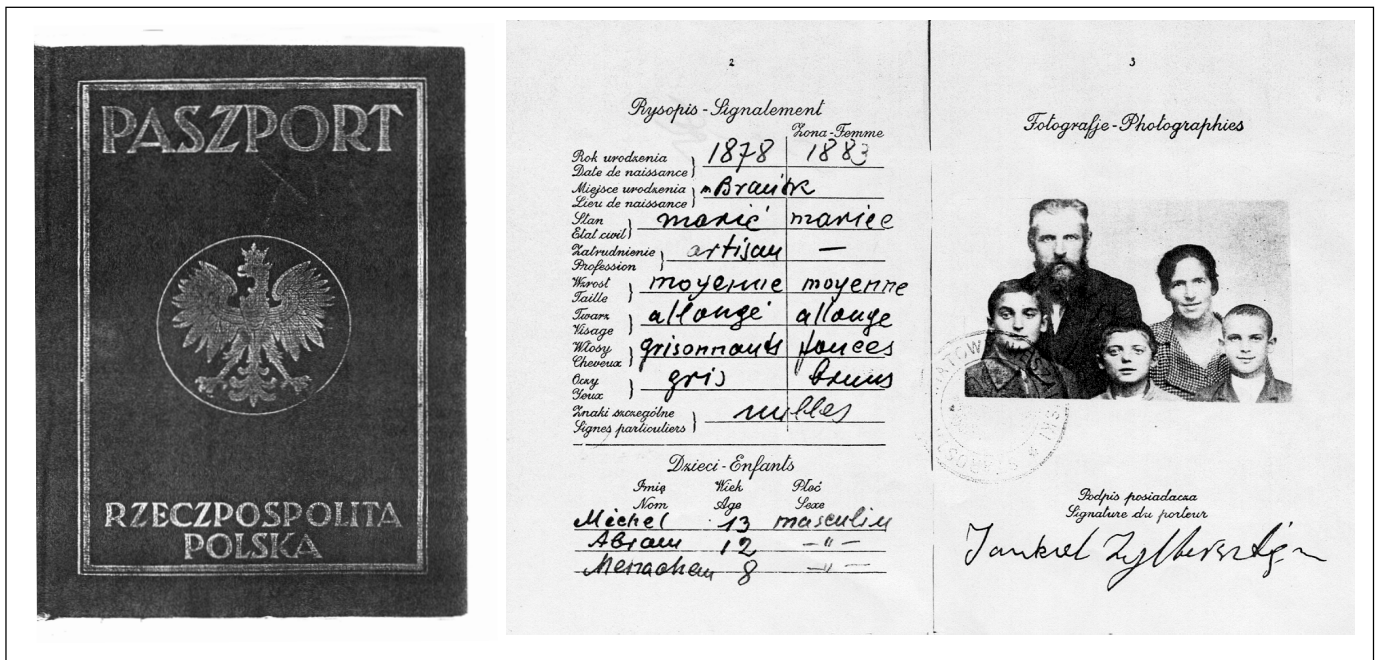 PASZPORT
RZECZPOSPOLITA
POLSKA
2
Rysopis - Signalement
Żona - Femme
Rok urodzenia
Date de naissance } 1878 1883
Miejsce urodzenia
Lieu de naissance }
Stan
Etat civil } marié mariée
Zatrudnienie
Profession } artisan —
Wzrost
Taille } moyenne moyenne
Twarz
Visage } allongé allongé
Włosy
Cheveux } grisonnants foncés
Oczy
Yeux } gris bruns
Znaki szczególne
Signes particuliers } nulles
Dzieci - Enfants
Imię Wiek Płeć
Nom Age Sexe
Mechel 13 masculin
Abram 12 — " —
Menachem 8 — " —
3
Fotografje - Photographies
Podpis posiadacza
Signature du porteur
Jankiel